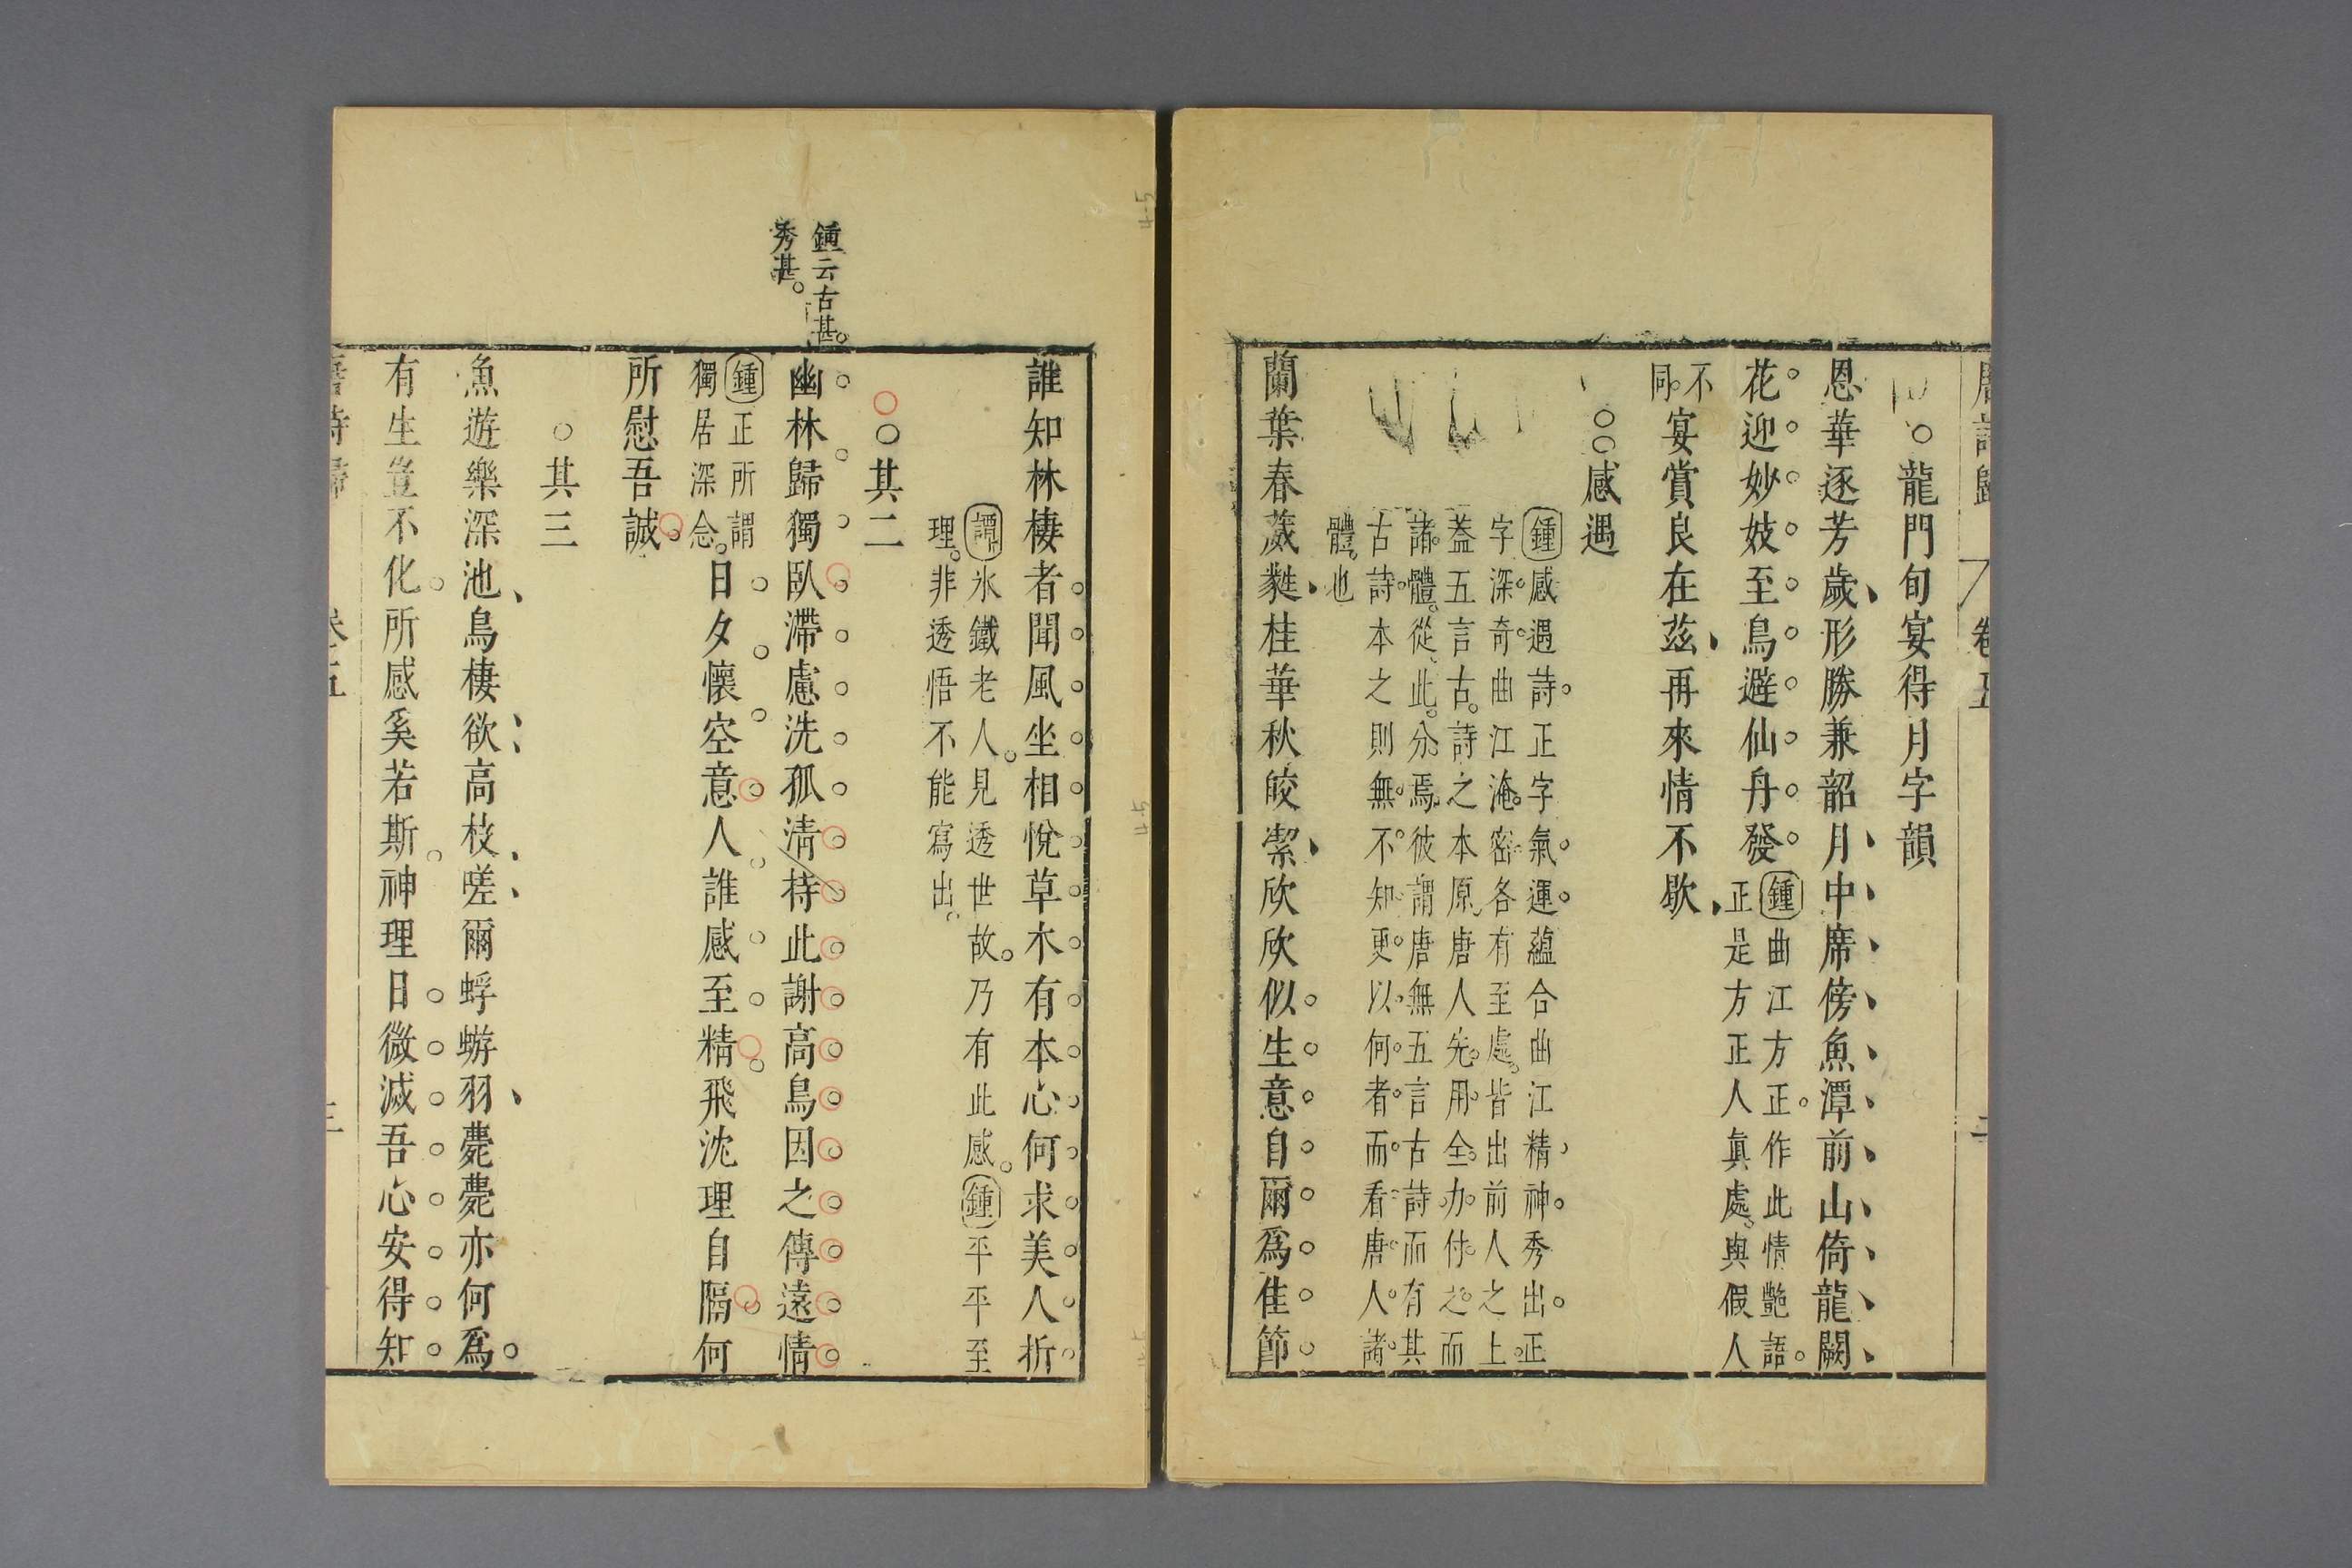 唐詩歸 卷五 二
龍門旬宴得月字韻
恩華逐芳歲形勝兼韶月中席傍魚潭前山倚龍闕
花迎妙妓至鳥避仙舟發
鍾曲江方正作此情艶語
正是方正人眞處與假人
不
同
宴賞良在茲再來情不歇
感遇
鍾感遇詩正字氣運蘊合曲江精神秀出正
字深奇曲江淹密各有至處皆出前人之上
葢五言古詩之本原唐人先用全力付之而
諸體從此分焉彼謂唐無五言古詩而有其
古詩本之則無不知更以何者而看唐人諸
體也
蘭葉春葳蕤桂華秋皎潔欣欣似生意自爾爲佳節
誰知林棲者聞風坐相悅草木有本心何求美人折
譚氷鐵老人見透世故乃有此感鍾平平至
理非透悟不能寫出
其二
鍾云古甚
秀甚
幽林歸獨臥滯慮洗孤清持此謝高鳥因之傳遠情
日夕懷空意人誰感至精飛沈理自隔何
鍾正所謂
獨居深念
所慰吾誠
其三
魚遊樂深池鳥棲欲高枝嗟爾蜉蝣羽薨薨亦何爲
有生豈不化所感奚若斯神理日微滅吾心安得知
唐詩歸 卷五 三